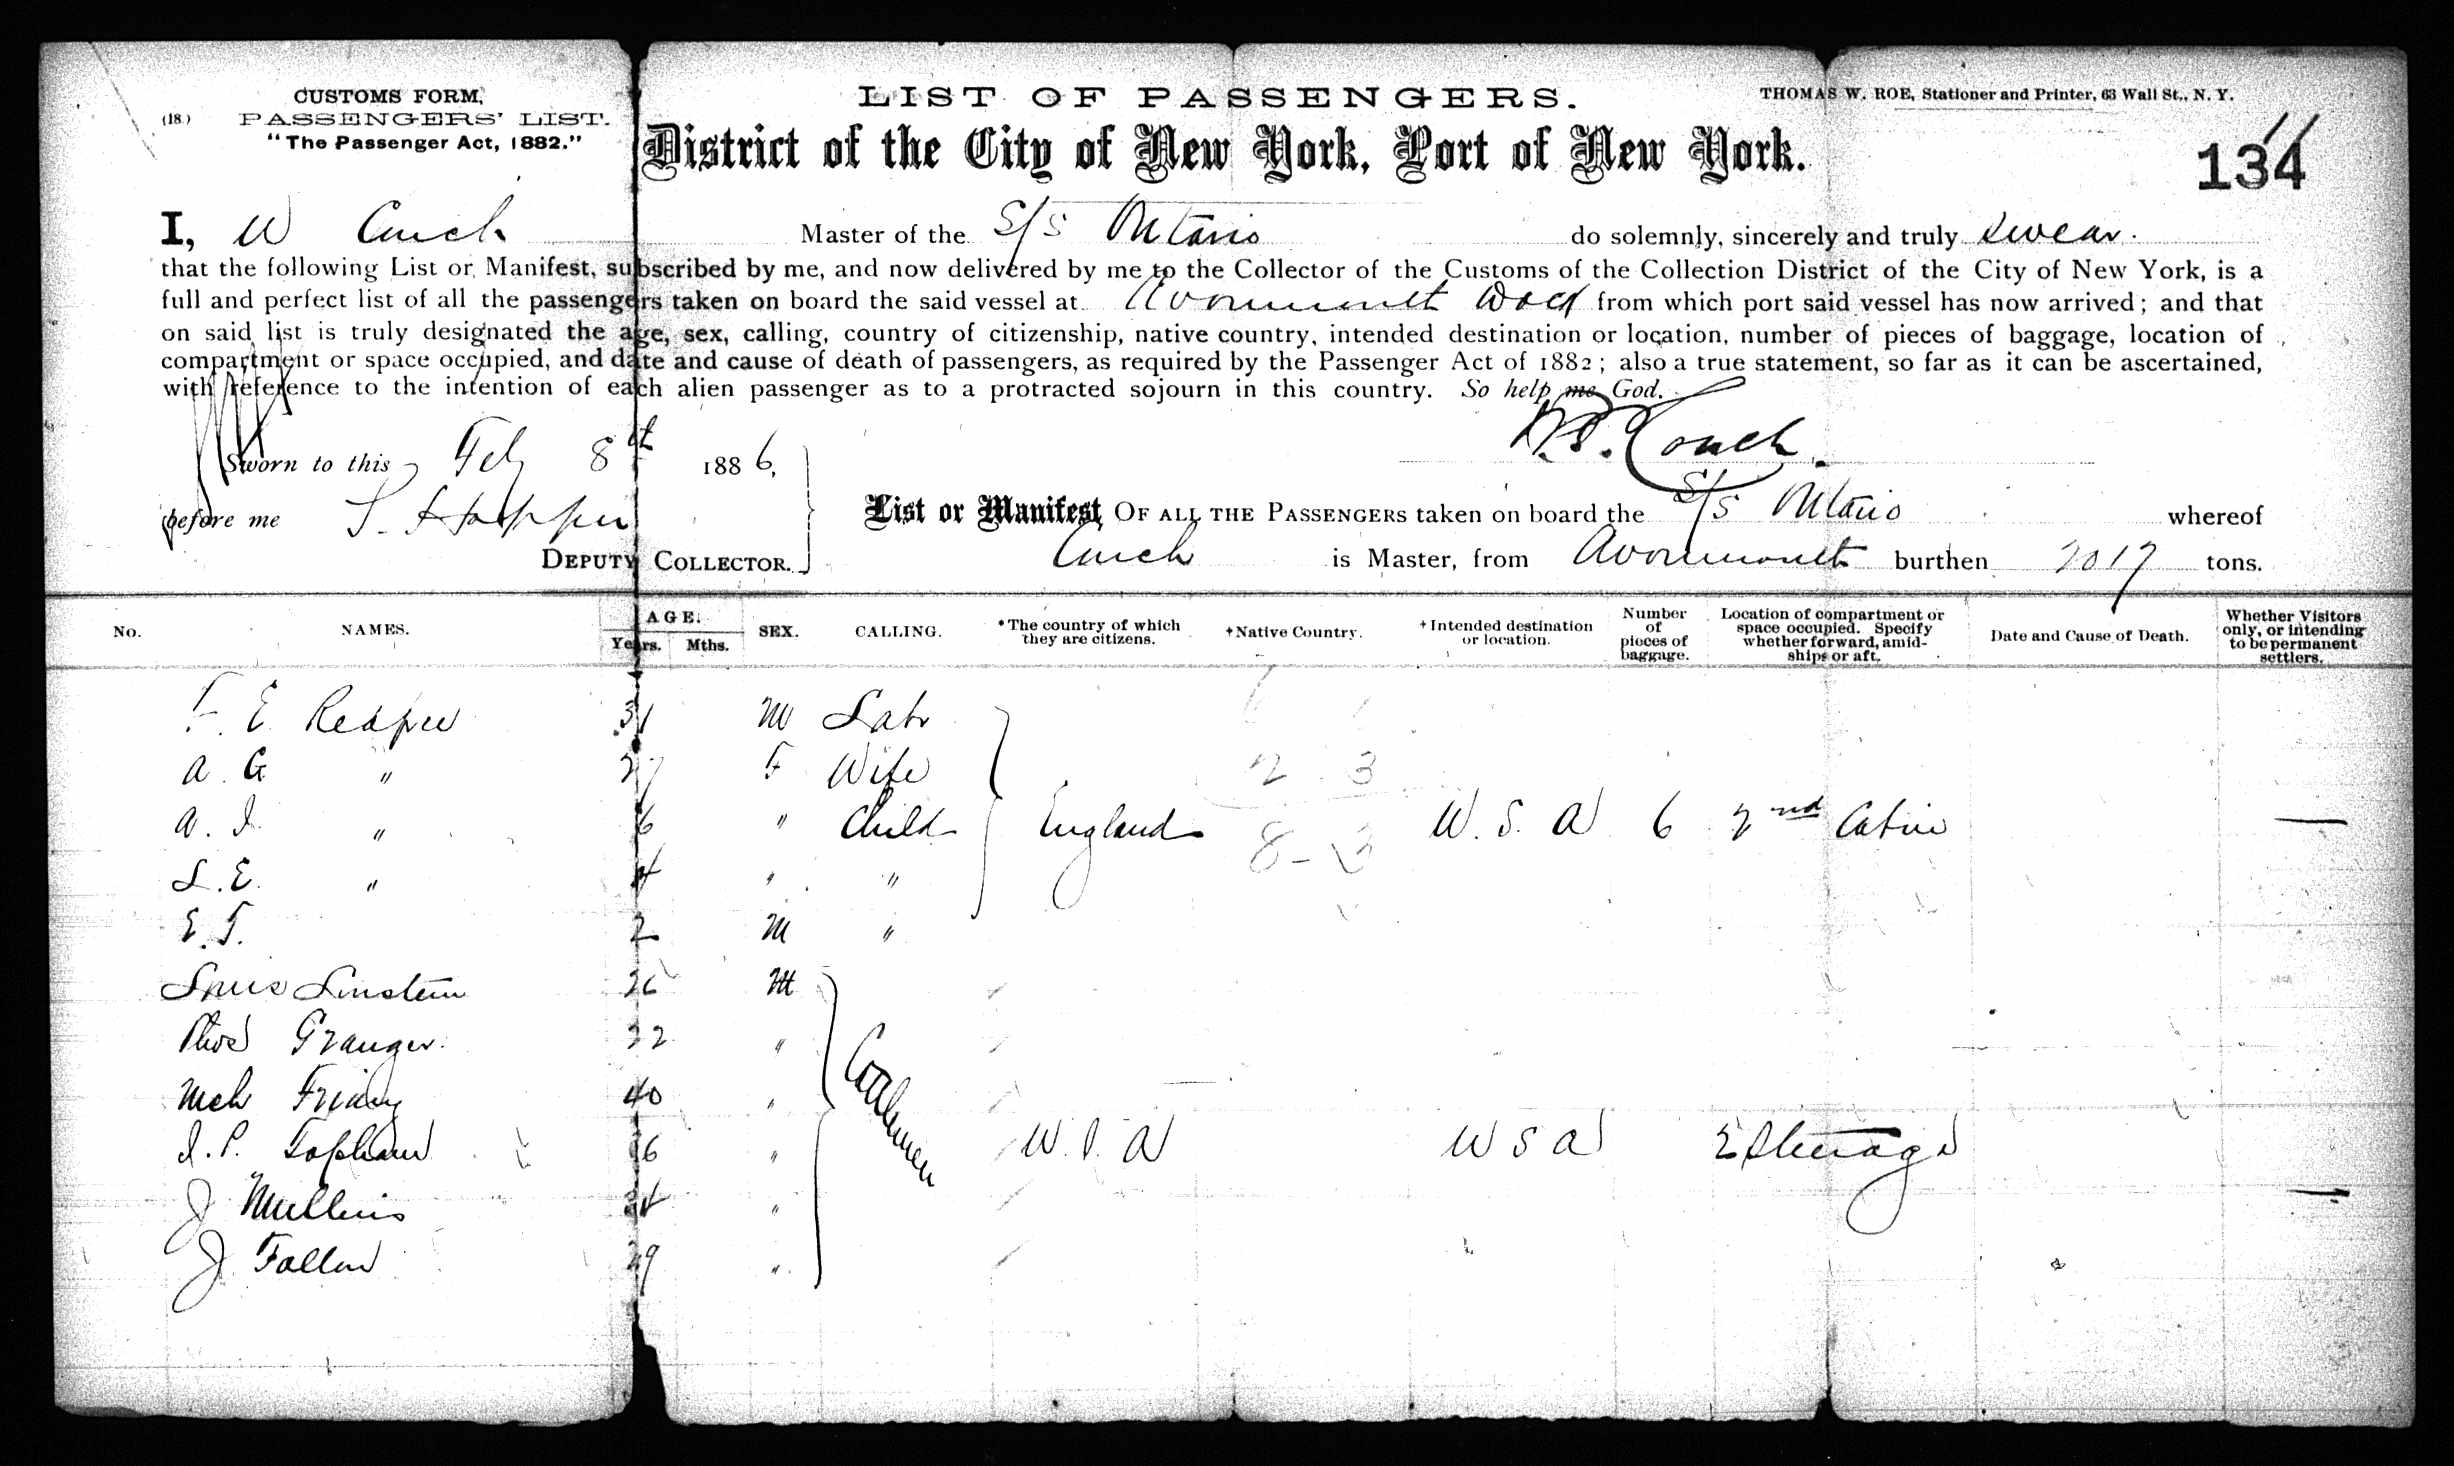 CUSTOMS FORM,
(18.) PASSENGERS' LIST.
"The Passenger Act, 1882."
LIST OF PASSENGERS.
THOMAS W. ROE, Stationer and Printer, 63 Wall St., N. Y.
District of the City of New York, Port of New York.
134
I, W Couch Master of the S/S Ontario do solemnly, sincerely and truly swear.
that the following List or Manifest, subscribed by me, and now delivered by me to the Collector of the Customs of the Collection District of the City of New York, is a
full and perfect list of all the passengers taken on board the said vessel at Avonmouth Dock from which port said vessel has now arrived; and that
on said list is truly designated the age, sex, calling, country of citizenship, native country, intended destination or location, number of pieces of baggage, location of
compartment or space occupied, and date and cause of death of passengers, as required by the Passenger Act of 1882; also a true statement, so far as it can be ascertained,
with reference to the intention of each alien passenger as to a protracted sojourn in this country. So help me God.
W. P. Couch.
Sworn to this Feby 8th 1886,
before me S. Hopper
DEPUTY COLLECTOR.
List or Manifest OF ALL THE PASSENGERS taken on board the S/S Ontario whereof
Couch is Master, from Avonmouth burthen 2017 tons.
No. NAMES. AGE. Years. Mths. SEX. CALLING. *The country of which they are citizens. +Native Country. +Intended destination or location. Number of pieces of baggage. Location of compartment or space occupied. Specify whether forward, amidships or aft. Date and Cause of Death. Whether Visitors only, or intending to be permanent settlers.
F. E 31 M Labr
A. G " 27 F Wife 2 3
A. I. " 6 " Child England 8-3 U. S. A 6 2nd Cabin —
L. E. " 4 " "
E. T. 2 M "
Louis Linstein 26 M
Granger. 22 "
40 "
I. P. Topham 36 " Cattlemen U. S. A U S A Steerage
J Mullins 34 " —
J Fallon 29 "